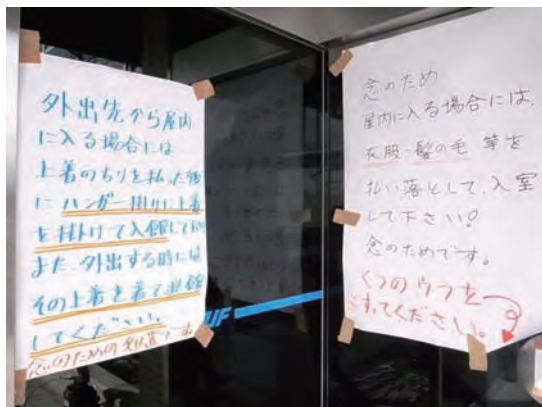 外出先から屋内
に入る場合には
上着のちりを払った後
に ハンガー掛けに上着
を掛けて入館して
また、外出する時には
その上着を着て
してください。
念のための処置です。
念のため
屋内に入る場合には、
衣服・髪の毛 等を
払い落として、入室
して下さい!
念のためです。
くつのウラを
こすってください。
UF